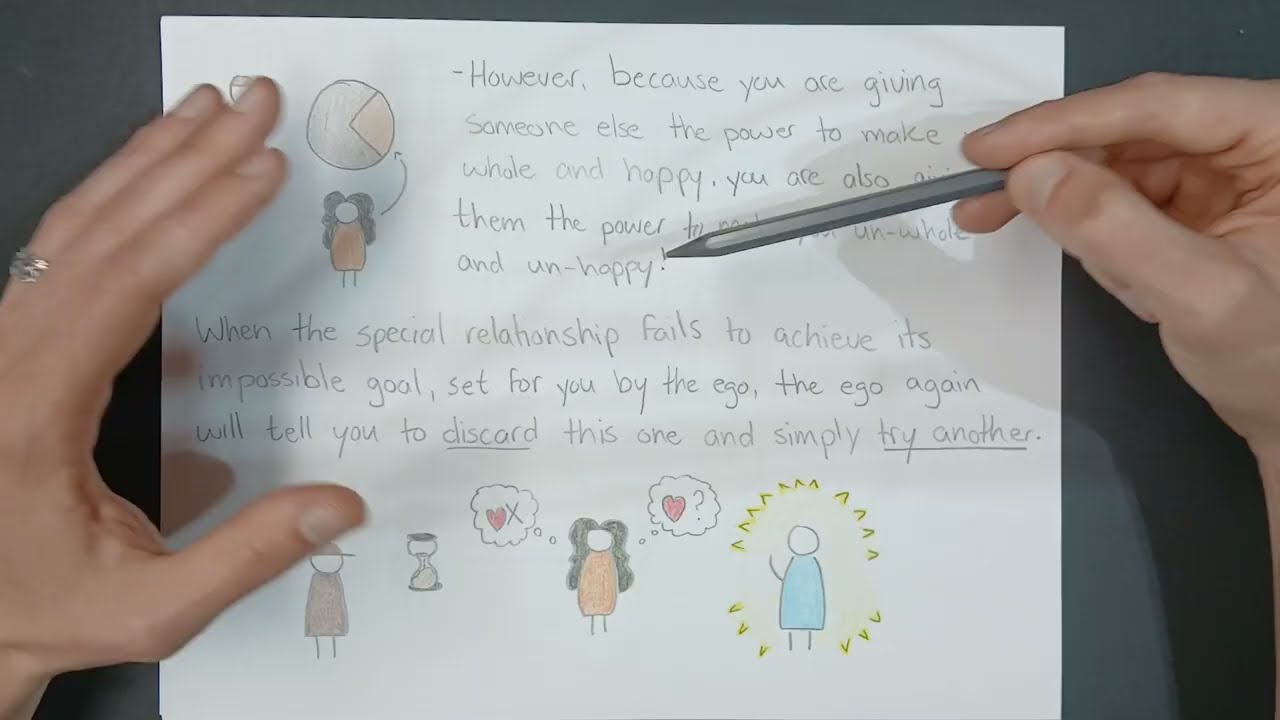 -However, because you are giving
someone else the power to make
whole and happy, you are also
them the power to un-whole
and un-happy!
When the special relationship fails to achieve its
impossible goal, set for you by the ego, the ego again
will tell you to discard this one and simply try another.
X
?